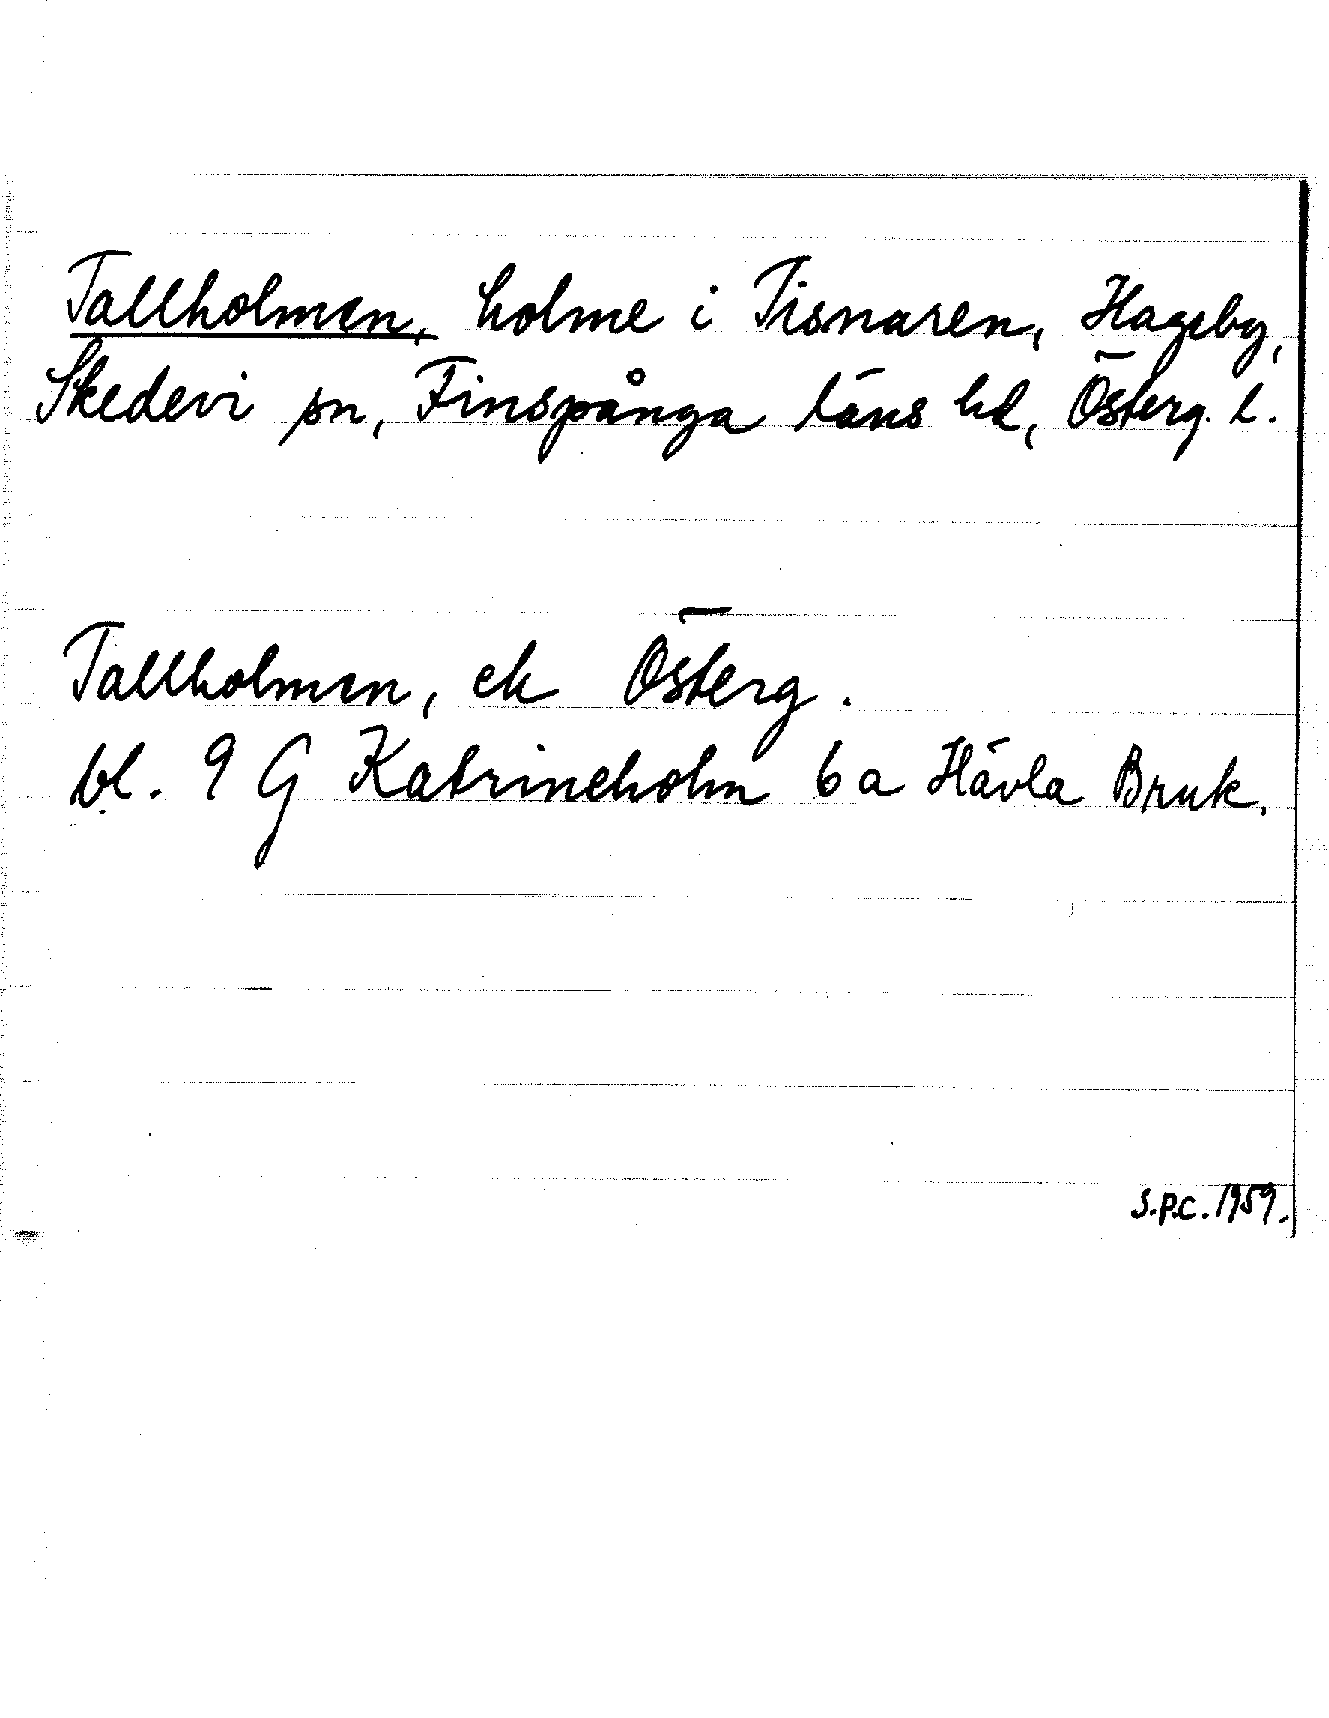 Tallholmen, holme i Tisnaren, Hageby,
Skedevi sn, Finspånga läns hd, Österg. l.
Tallholmen, ek Österg.
bl. 9 G Katrineholm 6 a Hävla Bruk.
S.P.C. 1959.